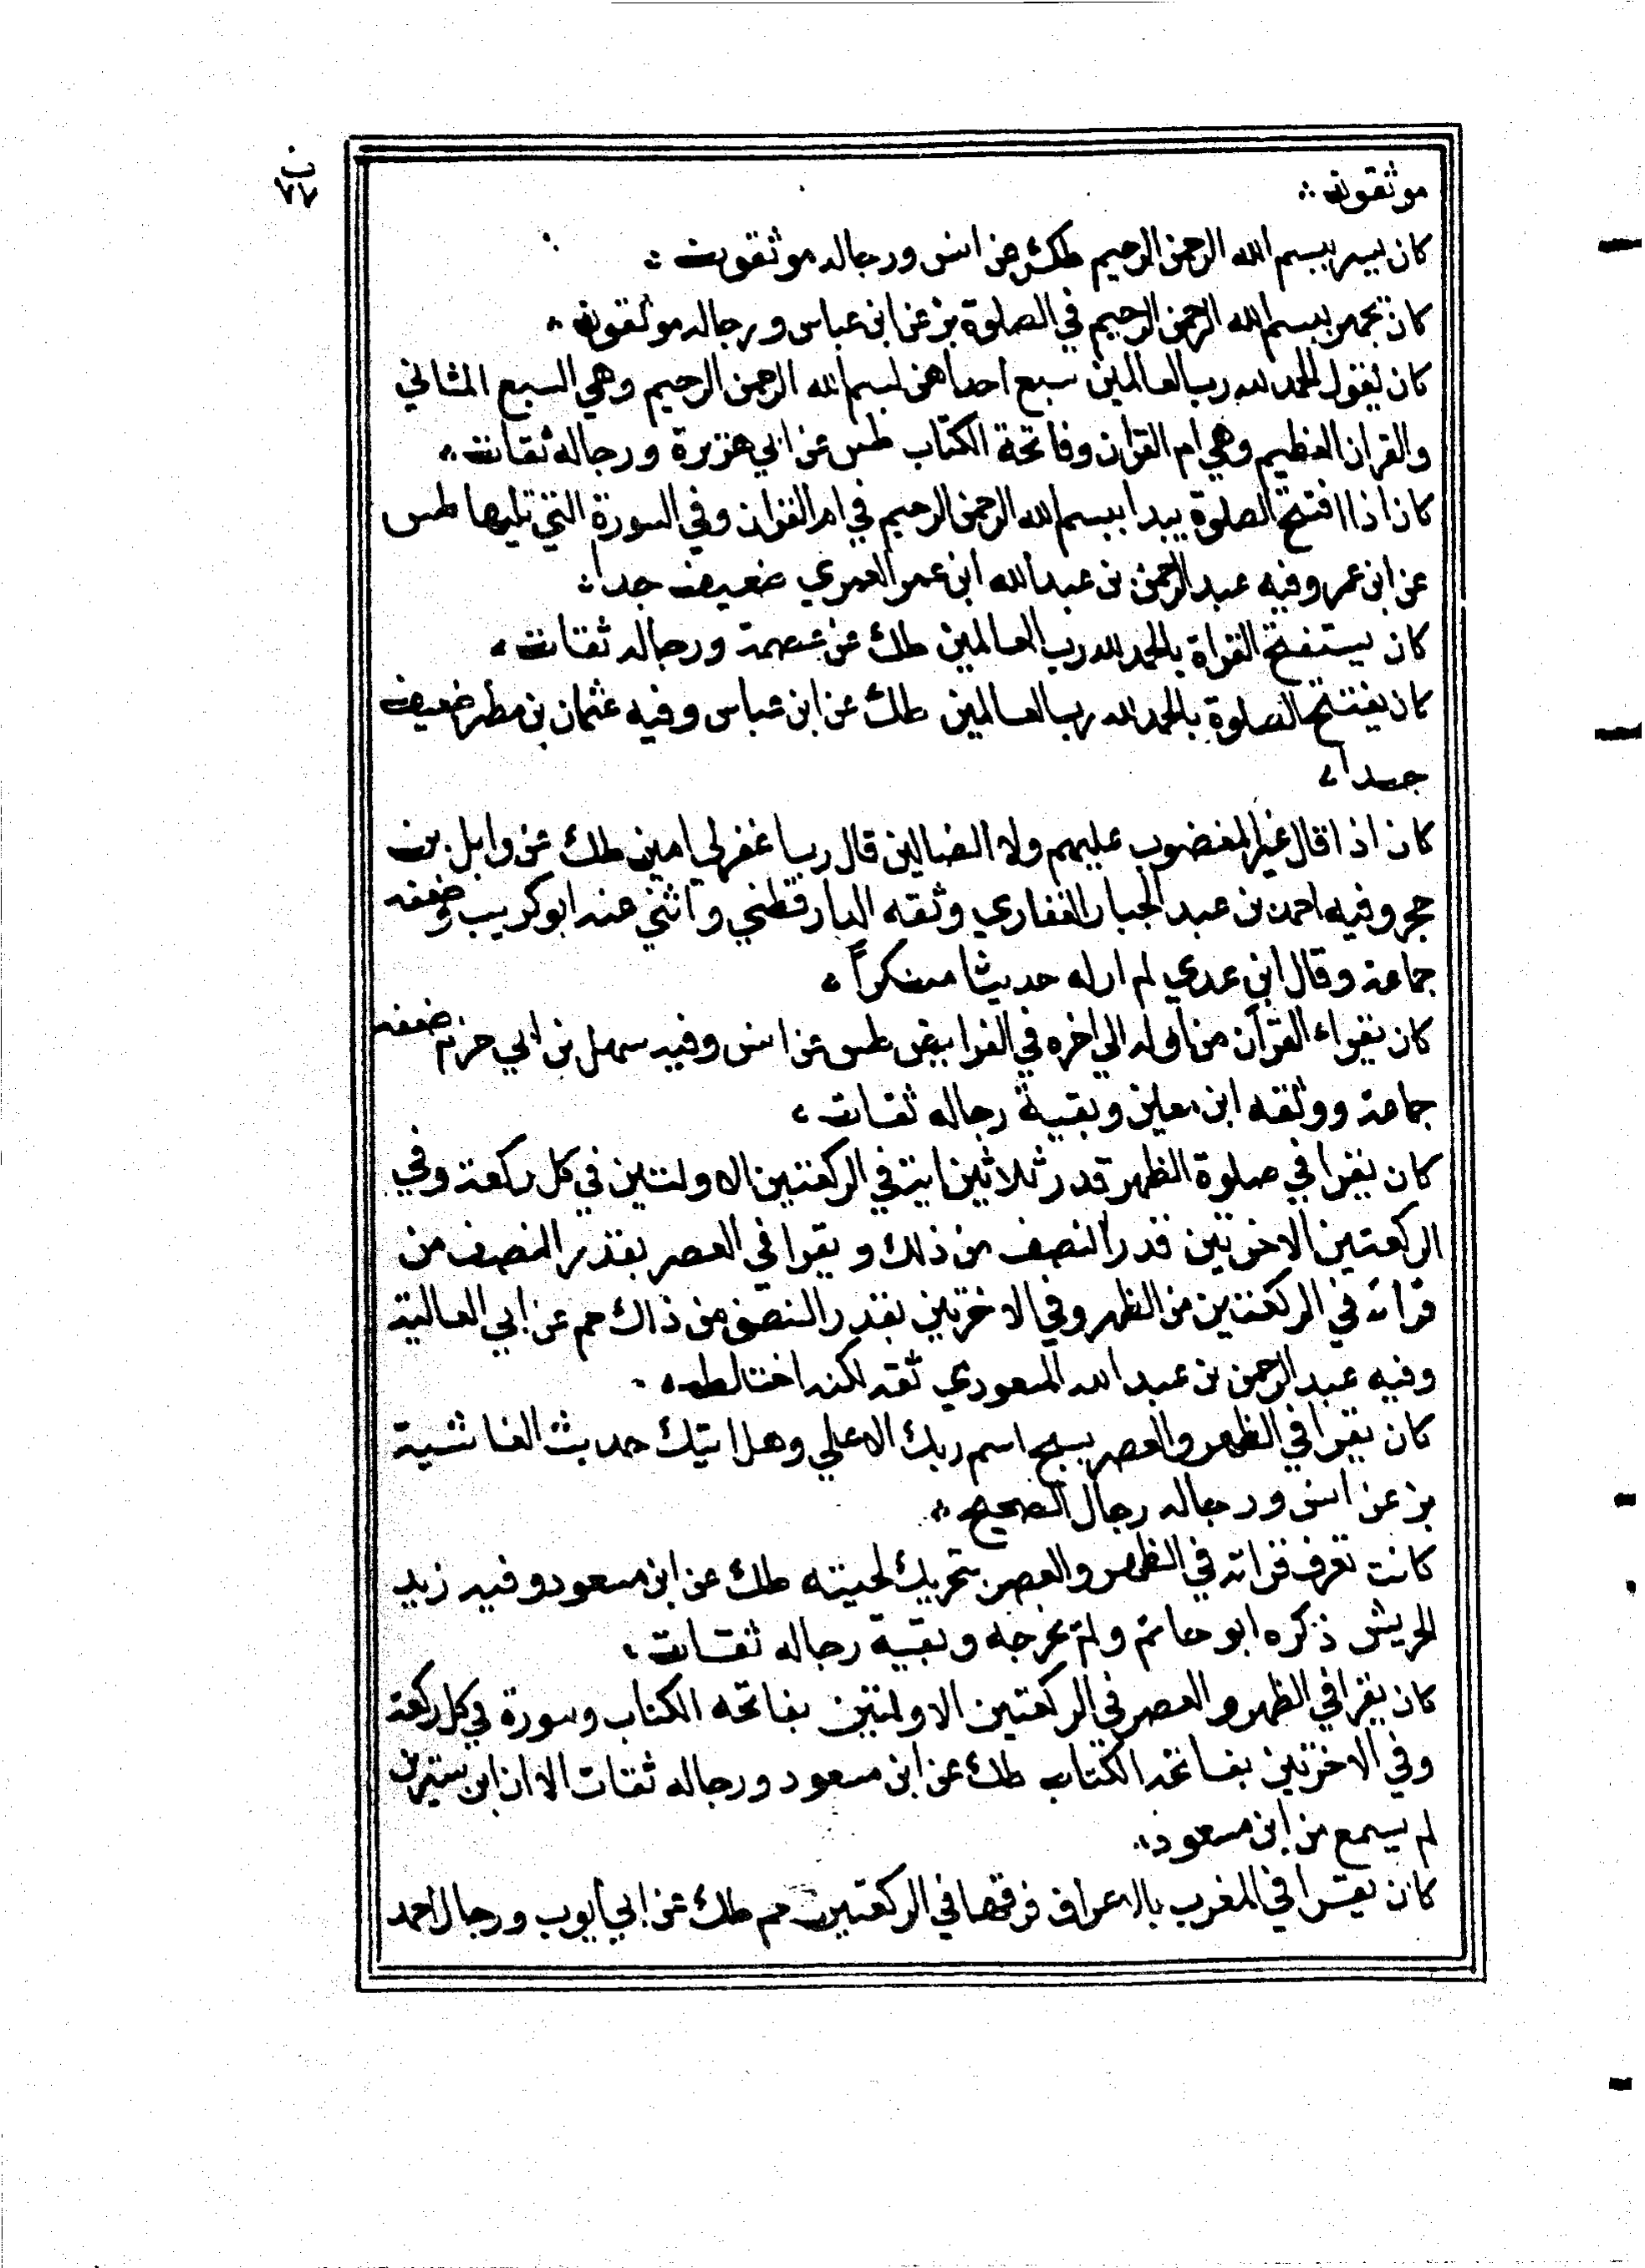 ب
٧٧
موثقون
كان يسر ببسم الله الرحمن الرحيم طك عن انس ورجاله موثقون
كان يجهر ببسم الله الرحمن الرحيم في الصلوة بز عن ابن عباس ورجاله موثقون
كان يقول الحمد لله رب العالمين سبع احداهن بسم الله الرحمن الرحيم وهي السبع المثاني
والقران العظيم وهي ام القران وفاتحة الكتاب طس عن ابي هريرة ورجاله ثقات
كان اذا افتتح الصلوة يبدا ببسم الله الرحمن الرحيم في ام القران وفي السورة التي تليها طس
عن ابن عمر وفيه عبد الرحمن بن عبد الله ابن عمر العمري ضعيف جدا
كان يستفتح القراة بالحمد لله رب العالمين طك عن عصمة ورجاله ثقات
كان يفتتح الصلوة بالحمد لله رب العالمين طك عن ابن عباس وفيه عثمان بن مطر ضعيف
جدا
كان اذا قال غير المغضوب عليهم ولا الضالين قال رب اغفر لي امين طك عن وايل بن
حجر وفيه احمد بن عبد الجبار الغفاري وثقه الدارقطني واثني عنه ابو كريب وضعفه
جماعة وقال ابن عدي لم ار له حديثا منكراً
كان يقراء القرآن من اوله الي اخره في الفرايض طس عن انس وفيه سهل بن ابي حزم ضعفه
جماعة ووثقه ابن معين وبقية رجاله ثقات
كان يقرا في صلوة الظهر قدر ثلاثين اية في الركعتين الاولتين في كل ركعة وفي
الركعتين الاخرتين قدر النصف من ذلك ويقرا في العصر بقدر النصف من
قراته في الركعتين من الظهر وفي الاخرتين بقدر النصف من ذاك حم عن ابي العالية
وفيه عبد الرحمن بن عبد الله المسعودي ثقه لكنه اختلط
كان يقرا في الظهر والعصر بسبح اسم ربك الاعلي وهل اتيك حديث الغاشية
بز عن انس ورجاله رجال الصحيح
كانت تعرف قراته في الظهر والعصر بتحريك لحيته طك عن ابن مسعود وفيه زيد
الحريش ذكره ابو حاتم ولم يخرجه وبقية رجاله ثقات
كان يقرا في الظهر والعصر في الركعتين الاولتين بفاتحه الكتاب وسورة في كل ركعة
وفي الاخرتين بفاتحة الكتاب طك عن ابن مسعود ورجاله ثقات الا ان ابن سيرين
لم يسمع من ابن مسعود
كان يقرا في المغرب بالاعراف فرقها في الركعتين حم طك عن ابي ايوب ورجال احمد